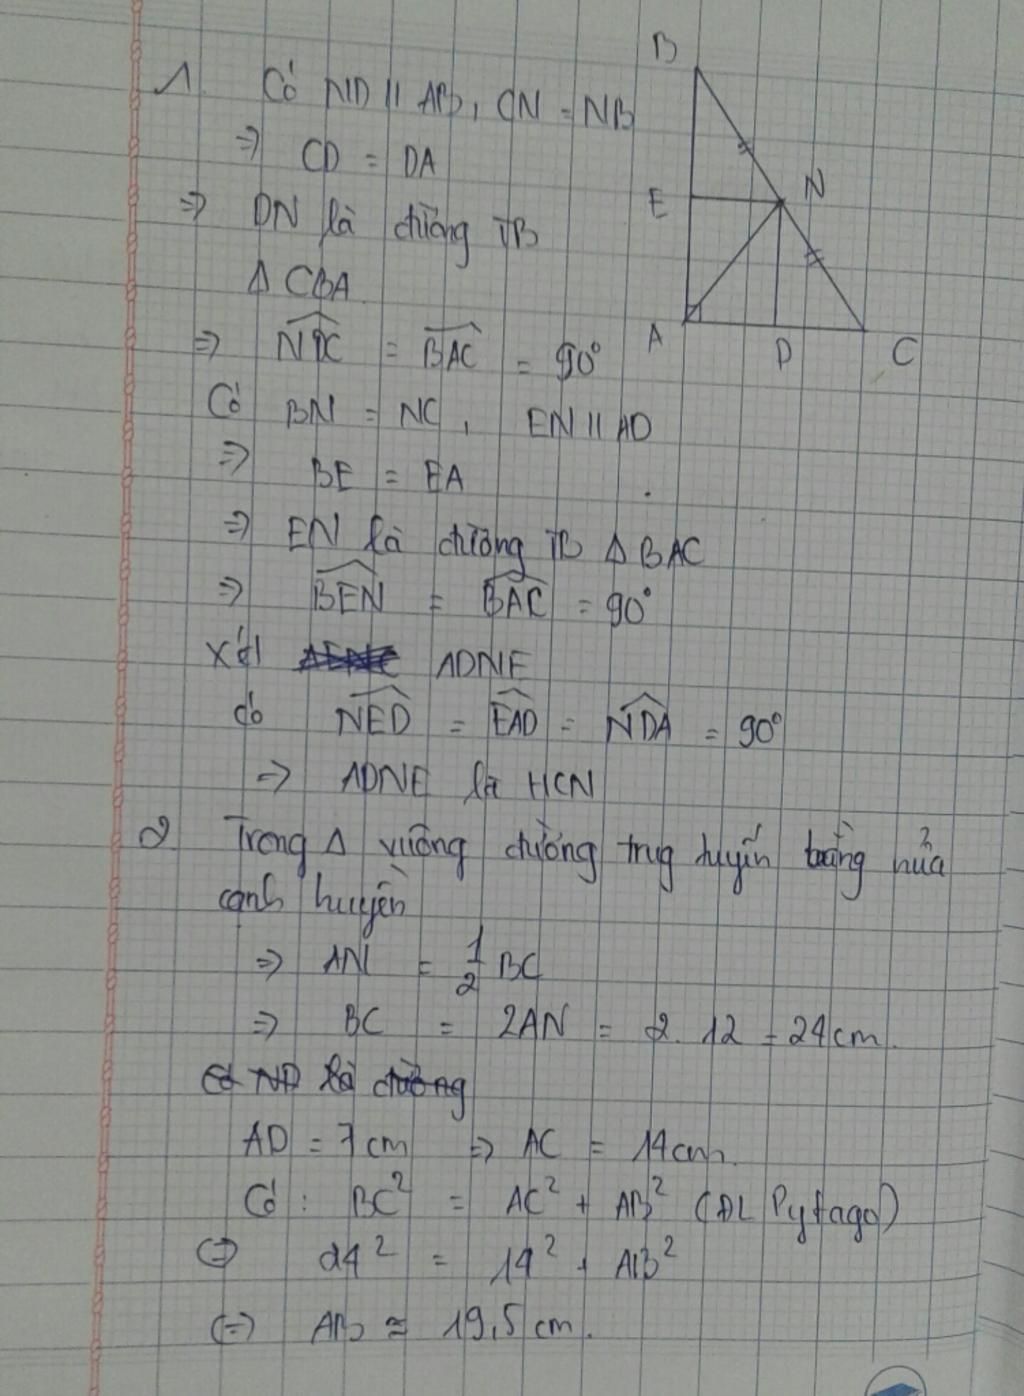 B
1. Có ND // AB, CN = NB
⇒ CD = DA
N
E
⇒ DN là đường TB
Δ CBA
A
D
C
⇒ \widehat{NDC} = \widehat{BAC} = 90°
Có BN = NC, EN // AD
⇒ BE = EA
⇒ EN là đường TB Δ BAC
⇒ \widehat{BEN} = \widehat{BAC} = 90°
Xét ADNE
có \widehat{NED} = \widehat{EAD} = \widehat{NDA} = 90°
⇒ ADNE là HCN
2 Trong Δ vuông đường trug tuyến bằng nửa
cạnh huyền
⇒ AN = \frac{1}{2} BC
⇒ BC = 2AN = 2. 12 = 24cm.
Có ND là đường
AD = 7cm ⇒ AC = 14cm.
Có : BC² = AC² + AB² (ĐL Pytago)
⇔ 24² = 14² + AB²
⇔ AB ≈ 19,5cm.